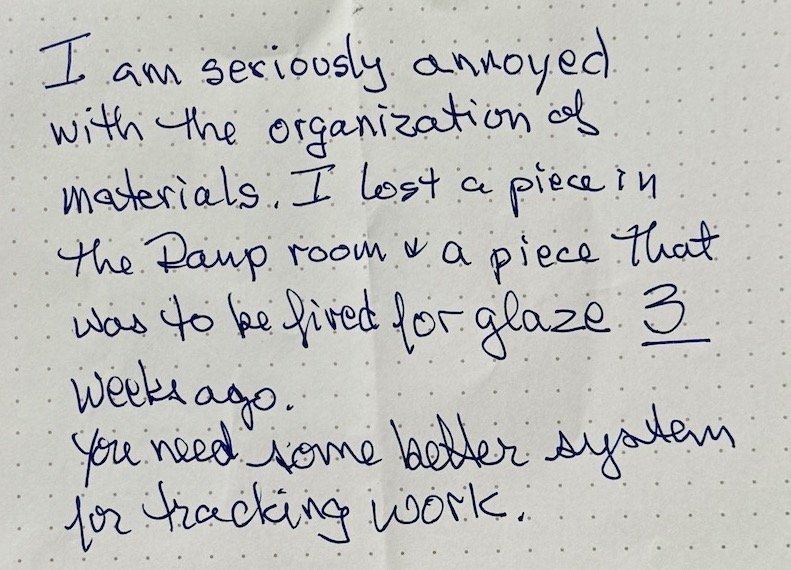 I am seriously annoyed
with the organization of
materials. I lost a piece in
the Damp room & a piece that
was to be fired for glaze 3
weeks ago.
You need some better system
for tracking work.